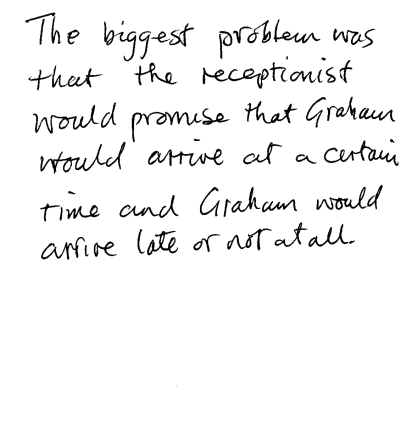 The biggest problem was
that the receptionist
would promise that Graham
would arrive at a certain
time and Graham would
arrive late or not at all.